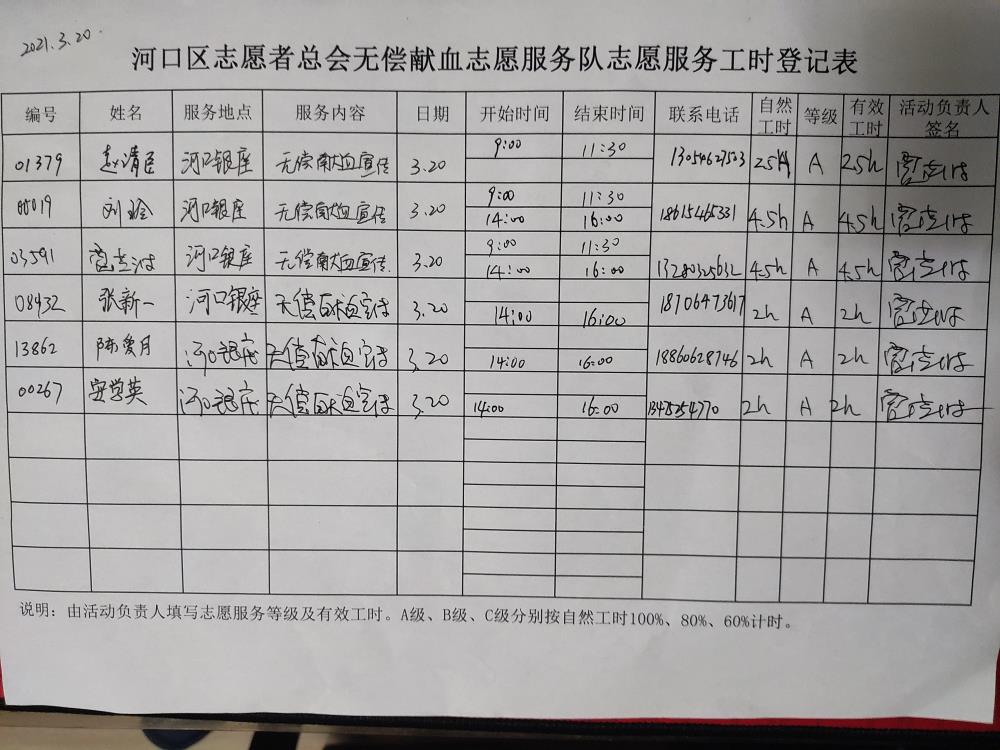 2021.3.20.
河口区志愿者总会无偿献血志愿服务队志愿服务工时登记表
编号 姓名 服务地点 服务内容 日期 开始时间 结束时间 联系电话 自然工时 等级 有效工时 活动负责人签名
01379 赵清臣 河口银座 无偿献血宣传 3.20 9:00 11:30 13054627523 2.5h A 2.5h
刘玲 河口银座 无偿献血宣传 3.20 9:00 11:30 18615465331 4.5h A 4.5h
14:00 16:00
03591 河口银座 无偿献血宣传 3.20 9:00 11:30 13280325632 4.5h A 4.5h
14:00 16:00
08432 张新一 河口银座 无偿献血宣传 3.20 14:00 16:00 18706473617 2h A 2h
13862 陈爱月 河口银座 无偿献血宣传 3.20 14:00 16:00 18860628746 2h A 2h
00267 安学英 河口银座 无偿献血宣传 3.20 14:00 16:00 13475254770 2h A 2h
说明：由活动负责人填写志愿服务等级及有效工时。A级、B级、C级分别按自然工时100%、80%、60%计时。